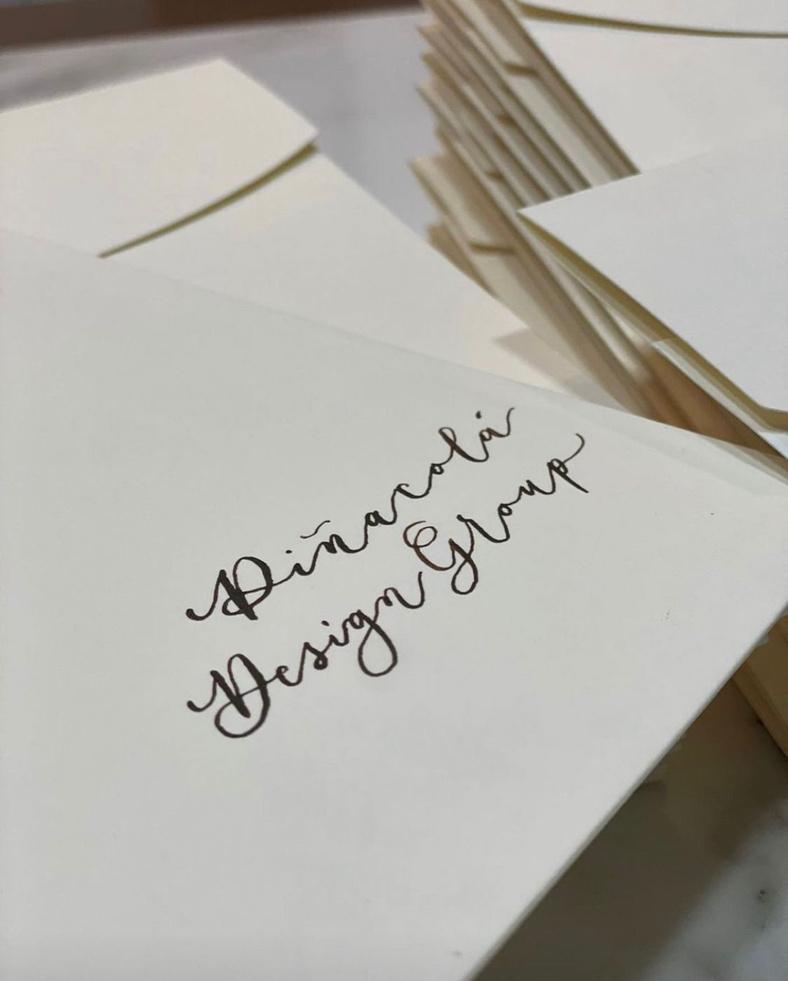 Piñacolá
Design Group